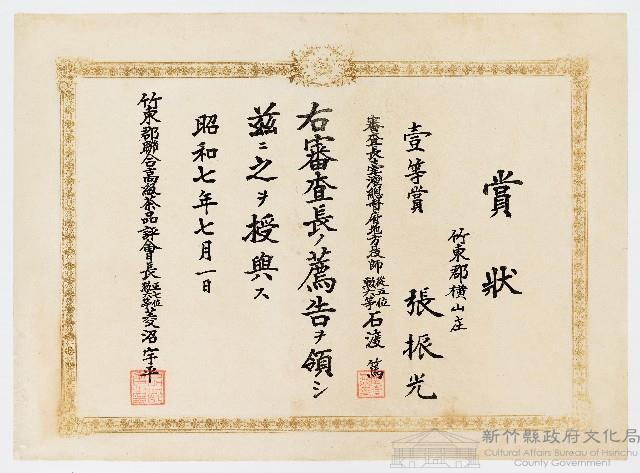 賞狀
竹東郡橫山庄
張振光
壹等賞
審査長臺灣總督府地方技師 從五位 勲六等 石渡 篤
右審査長ノ薦告ヲ領シ
茲ニ之ヲ授與ス
昭和七年七月一日
竹東郡聯合高級茶品評會長 正七位 菱沼宇平
新竹縣政府文化局
Cultural Affairs Bureau of Hsinchu
County Government